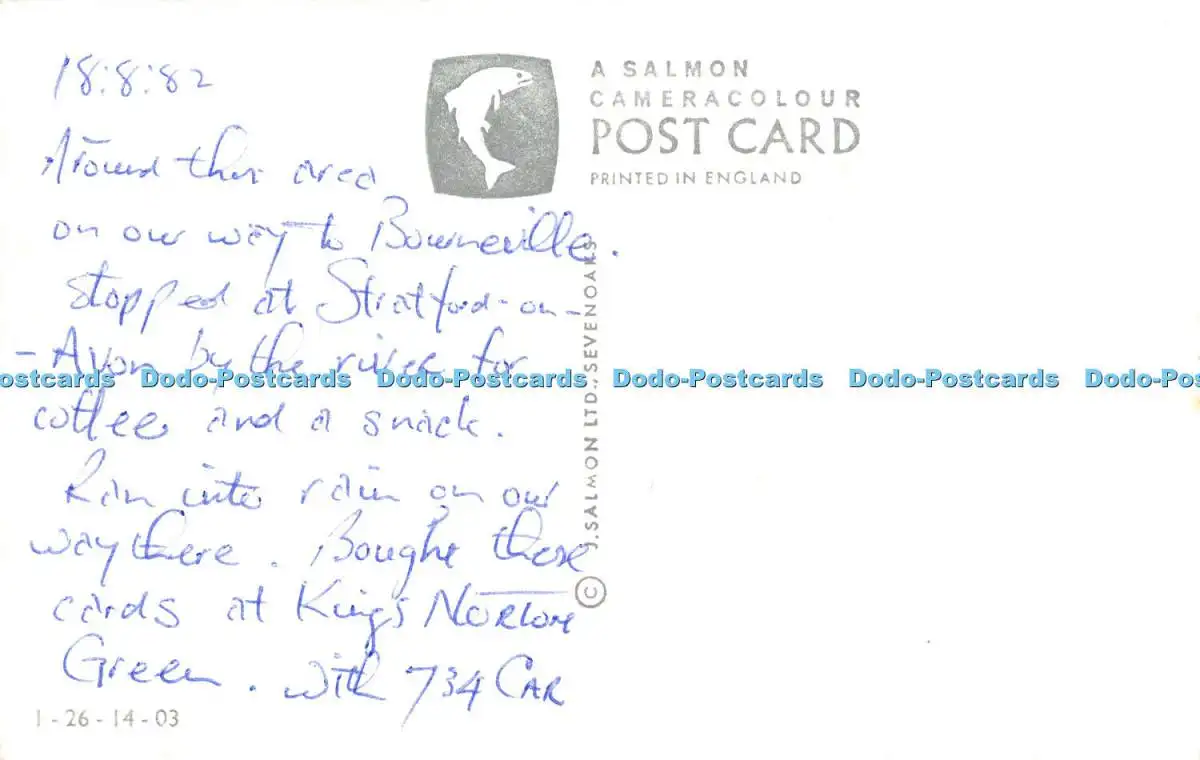 18:8:82
Around this area
on our way to Bourneville.
stopped at Stratford-on-
- Avon by the river for
coffee and a snack.
Ran into rain on our
way there. Bought these
cards at King's Norton
Green. with 734 CAR
1 - 26 - 14 - 03
A SALMON
CAMERACOLOUR
POST CARD
PRINTED IN ENGLAND
© J. SALMON LTD., SEVENOAKS
ostcards Dodo-Postcards Dodo-Postcards Dodo-Postcards Dodo-Postcards Dodo-Postc